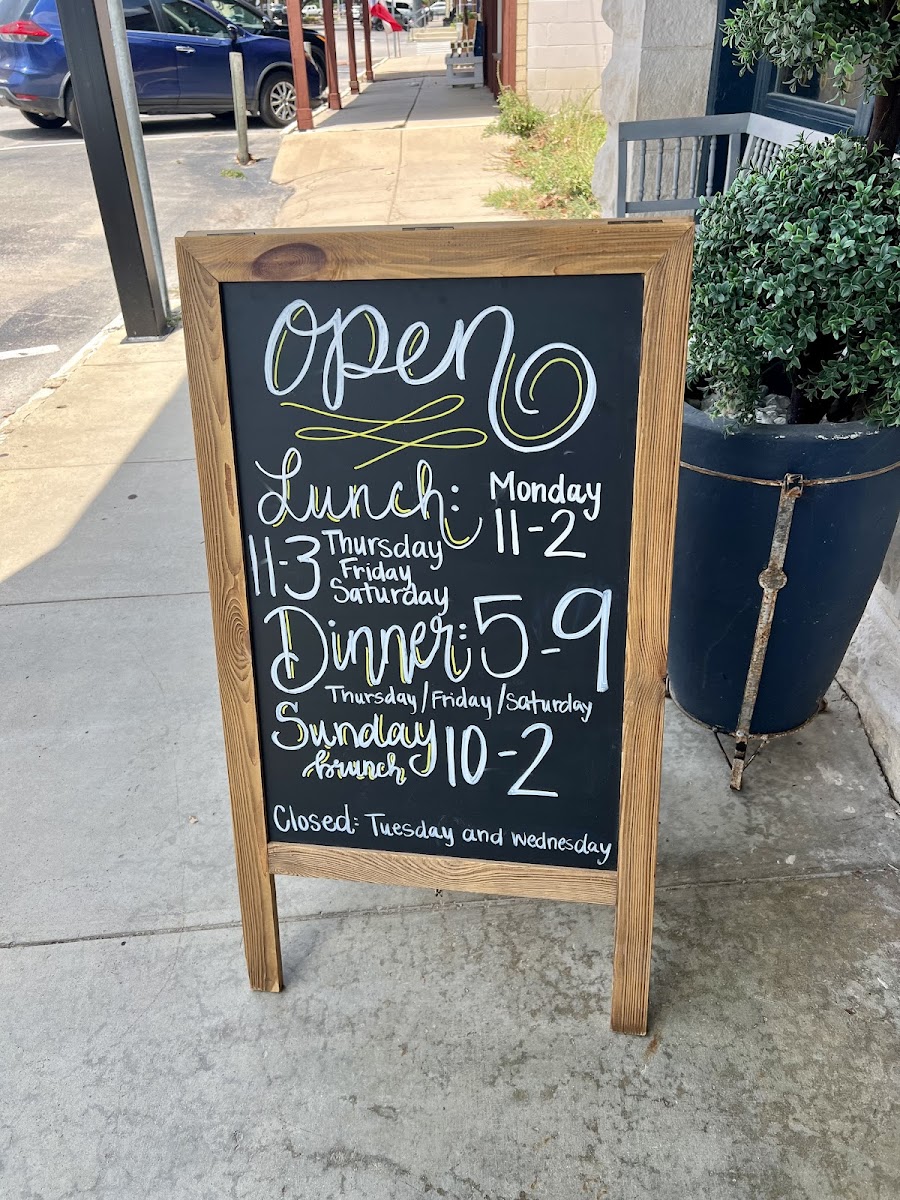 Open
Lunch:
Monday
11-2
11-3 Thursday
Friday
Saturday
Dinner: 5-9
Thursday/Friday/Saturday
Sunday
brunch
10-2
Closed: Tuesday and Wednesday